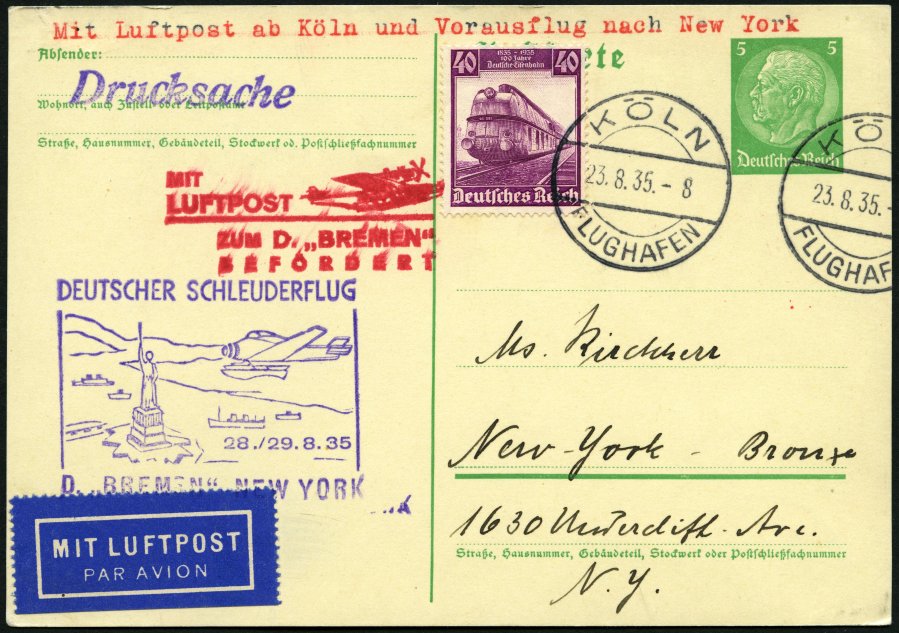 Mit Luftpost ab Köln und Vorausflug nach New York
Absender:
Drucksache
Wohnort, auch Zustell- oder Leitpostamt
Straße, Hausnummer, Gebäudeteil, Stockwerk od. Postschließfachnummer
MIT
LUFTPOST
ZUM D. „BREMEN“
BEFÖRDERT
DEUTSCHER SCHLEUDERFLUG
28./29.8.35
D. „BREMEN“ NEW YORK
MIT LUFTPOST
PAR AVION
40 1835 - 1935 40
100 Jahre
Deutsche Eisenbahn
Deutsches Reich
5 5
Deutsches Reich
KÖLN
23.8.35.-8
FLUGHAFEN
KÖ
23.8.35.-
FLUGHAF
Ms. Kirchherr
New-York - Bronx
1630 Undercliff. Ave.
Straße, Hausnummer, Gebäudeteil, Stockwerk oder Postschließfachnummer
N.Y.